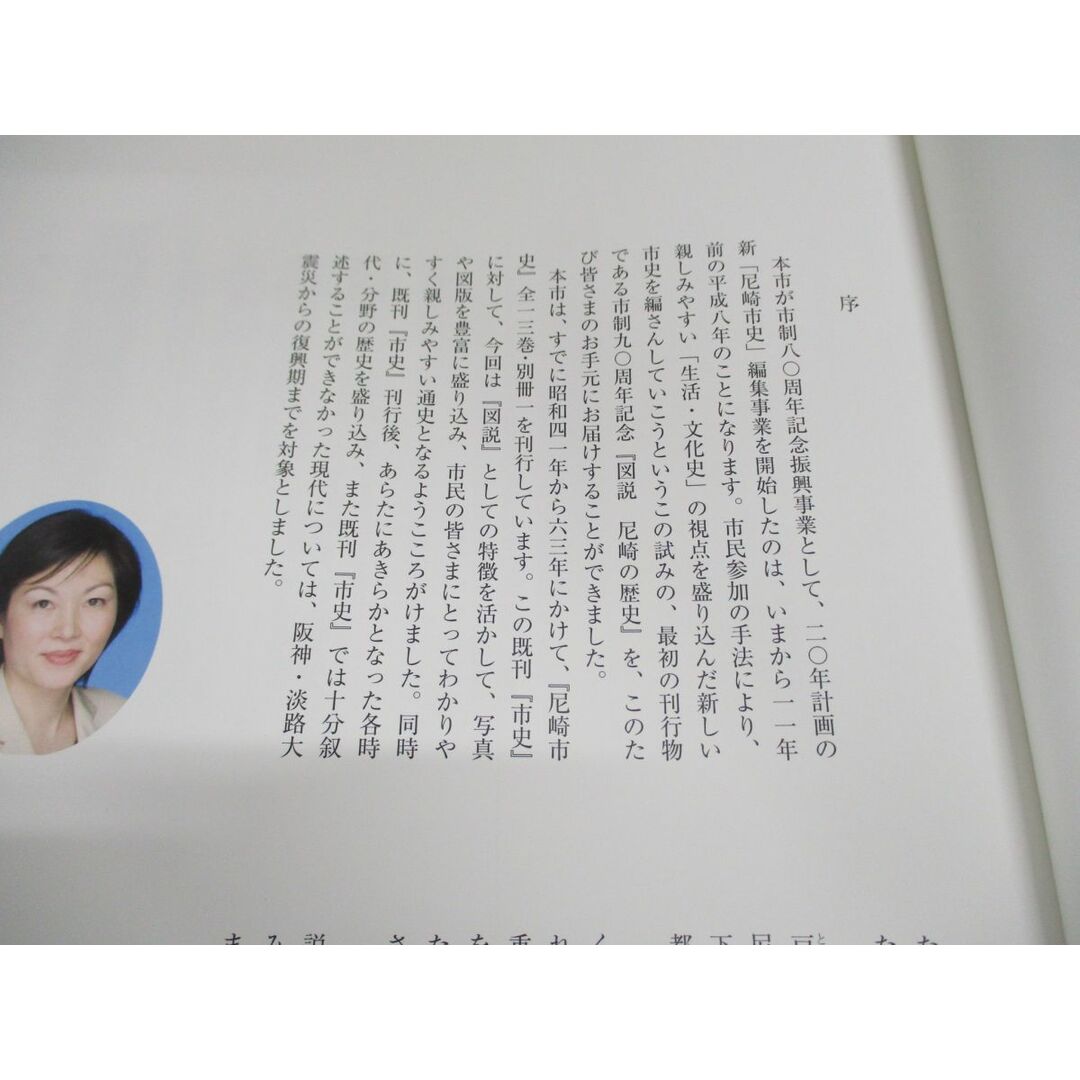 序
本市が市制八〇周年記念振興事業として、二〇年計画の
新「尼崎市史」編集事業を開始したのは、いまから一一年
前の平成八年のことになります。市民参加の手法により、
親しみやすい「生活・文化史」の視点を盛り込んだ新しい
市史を編さんしていこうというこの試みの、最初の刊行物
である市制九〇周年記念『図説　尼崎の歴史』を、このた
び皆さまのお手元にお届けすることができました。
本市は、すでに昭和四一年から六三年にかけて、『尼崎市
史』全一三巻・別冊一を刊行しています。この既刊『市史』
に対して、今回は『図説』としての特徴を活かして、写真
や図版を豊富に盛り込み、市民の皆さまにとってわかりや
すく親しみやすい通史となるようこころがけました。同時
に、既刊『市史』刊行後、あらたにあきらかとなった各時
代・分野の歴史を盛り込み、また既刊『市史』では十分叙
述することができなかった現代については、阪神・淡路大
震災からの復興期までを対象としました。